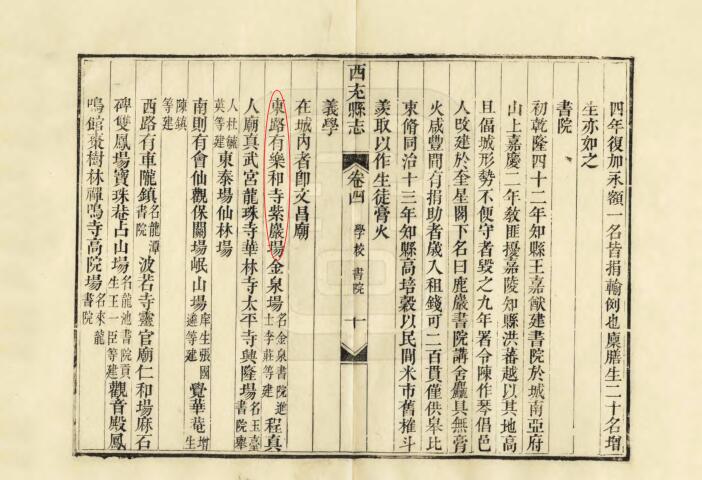 四年復加永額一名皆捐輸例也廩膳生二十名增
生亦如之
書院
初乾隆四十二年知縣王嘉猷建書院於城南亞府
山上嘉慶二年教匪擾嘉陵知縣洪蕃越以其地高
且偪城形勢不便守者毀之九年署令陳作琴倡邑
人改建於奎星閣下名曰鹿巖書院講舍龎具無膏
火咸豐間有捐助者歲入租錢可二百貫僅供皋比
束脩同治十三年知縣高培穀以民間米市舊榷斗
羨取以作生徒膏火
西充縣志
卷四
學校
書院
十
義學
在城內者卽文昌廟
東路有樂和寺紫巖場金泉場名金泉書院進士李莊等建程真
人廟真武宮龍珠寺華林寺太平寺興隆場名玉臺書院舉
人杜毓英等建東泰場仙林場
南則有會仙觀保關場岷山場庠生張國遴等建覺華菴增生
陳鎮等建
西路有車隴鎮名龍潭書院波若寺靈官廟仁和場麻石
碑雙鳳場寶珠菴占山場名龍池書院貢生王一臣等建觀音殿鳳
鳴館棗樹林禪鳴寺高院場名來龍書院